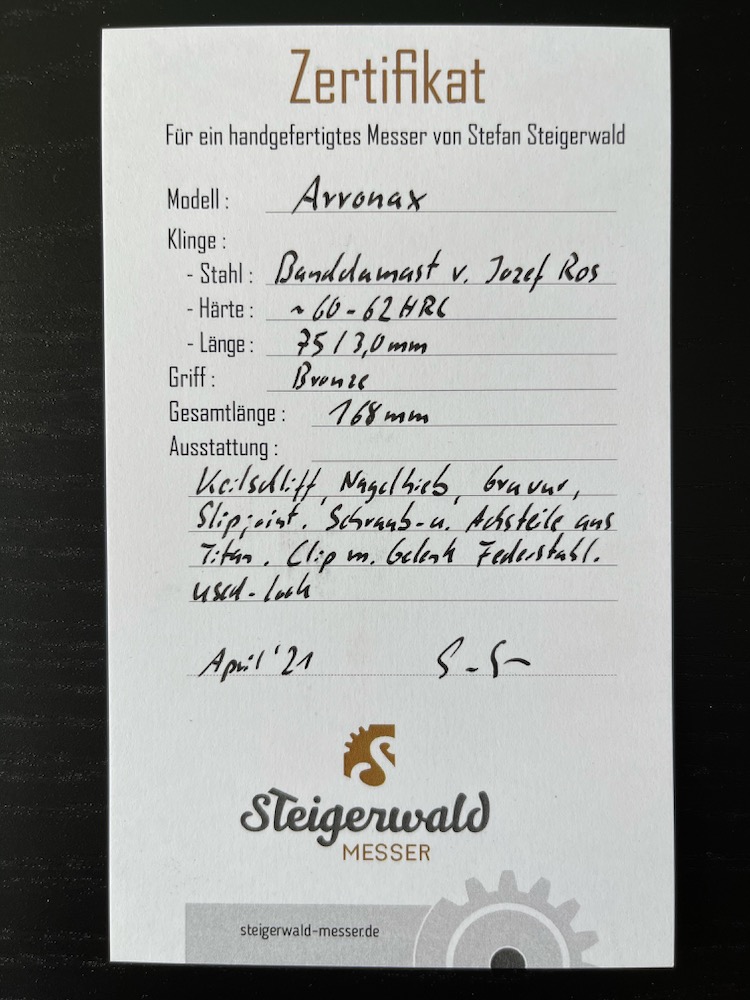 Zertifikat
Für ein handgefertigtes Messer von Stefan Steigerwald
Modell : Arronax
Klinge :
- Stahl : Banddamast v. Jozef Ros
- Härte : ~ 60 - 62 HRC
- Länge : 75 / 3,0 mm
Griff : Bronze
Gesamtlänge : 168 mm
Ausstattung :
Keilschliff, Nagelhieb, Gravur,
Slipjoint. Schraub- u. Achsteile aus
Titan. Clip m. Gelenk Federstahl.
used-look
April '21
S
Steigerwald
MESSER
steigerwald-messer.de